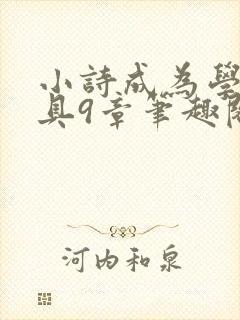 小詩成為學
具9章筆趣閱
河内和泉